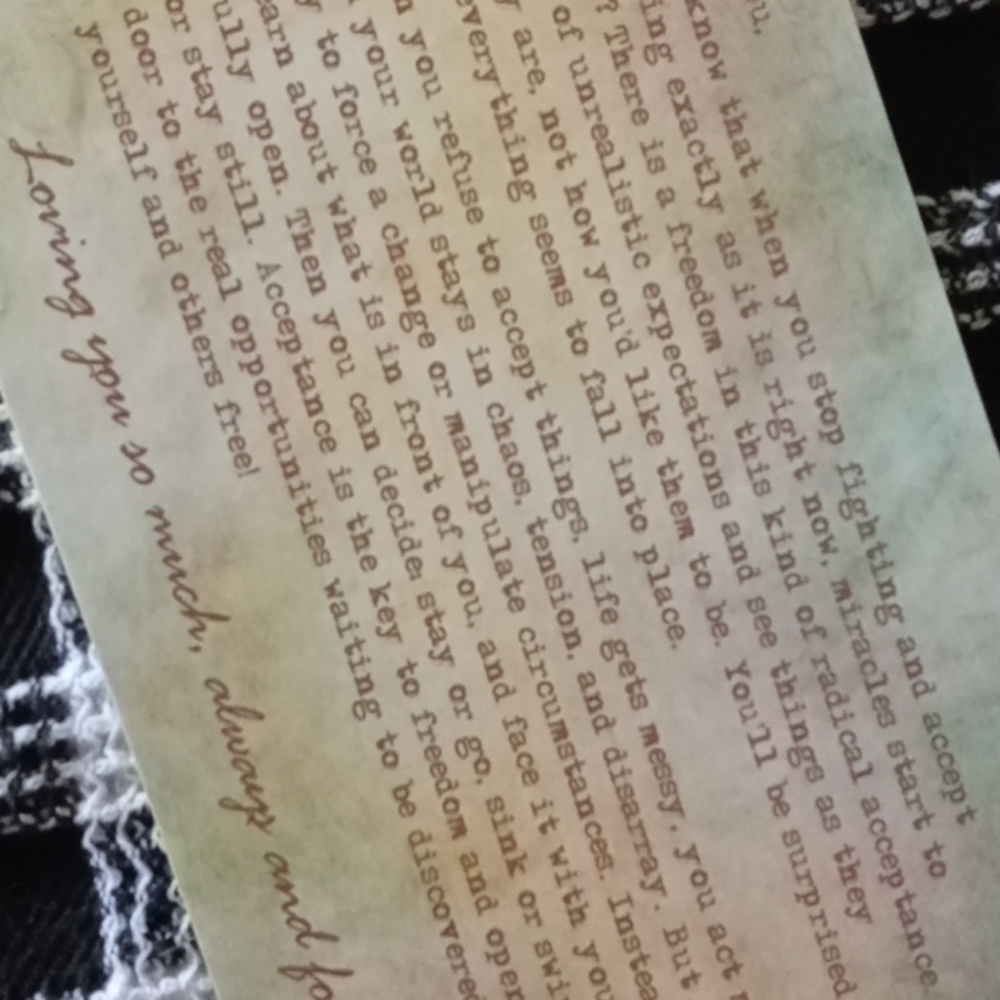 u,
know that when you stop fighting and accept
ing exactly as it is right now, miracles start to
? There is a freedom in this kind of radical acceptance.
of unrealistic expectations and see things as they
y are, not how you'd like them to be. You'll be surprised
everything seems to fall into place.
n you refuse to accept things, life gets messy, you act
your world stays in chaos, tension, and disarray. But
y to force a change or manipulate circumstances. Instea
earn about what is in front of you, and face it with you
ully open. Then you can decide; stay or go, sink or swi
or stay still. Acceptance is the key to freedom and open
door to the real opportunities waiting to be discovered
yourself and others free!
Loving you so much, always and fo